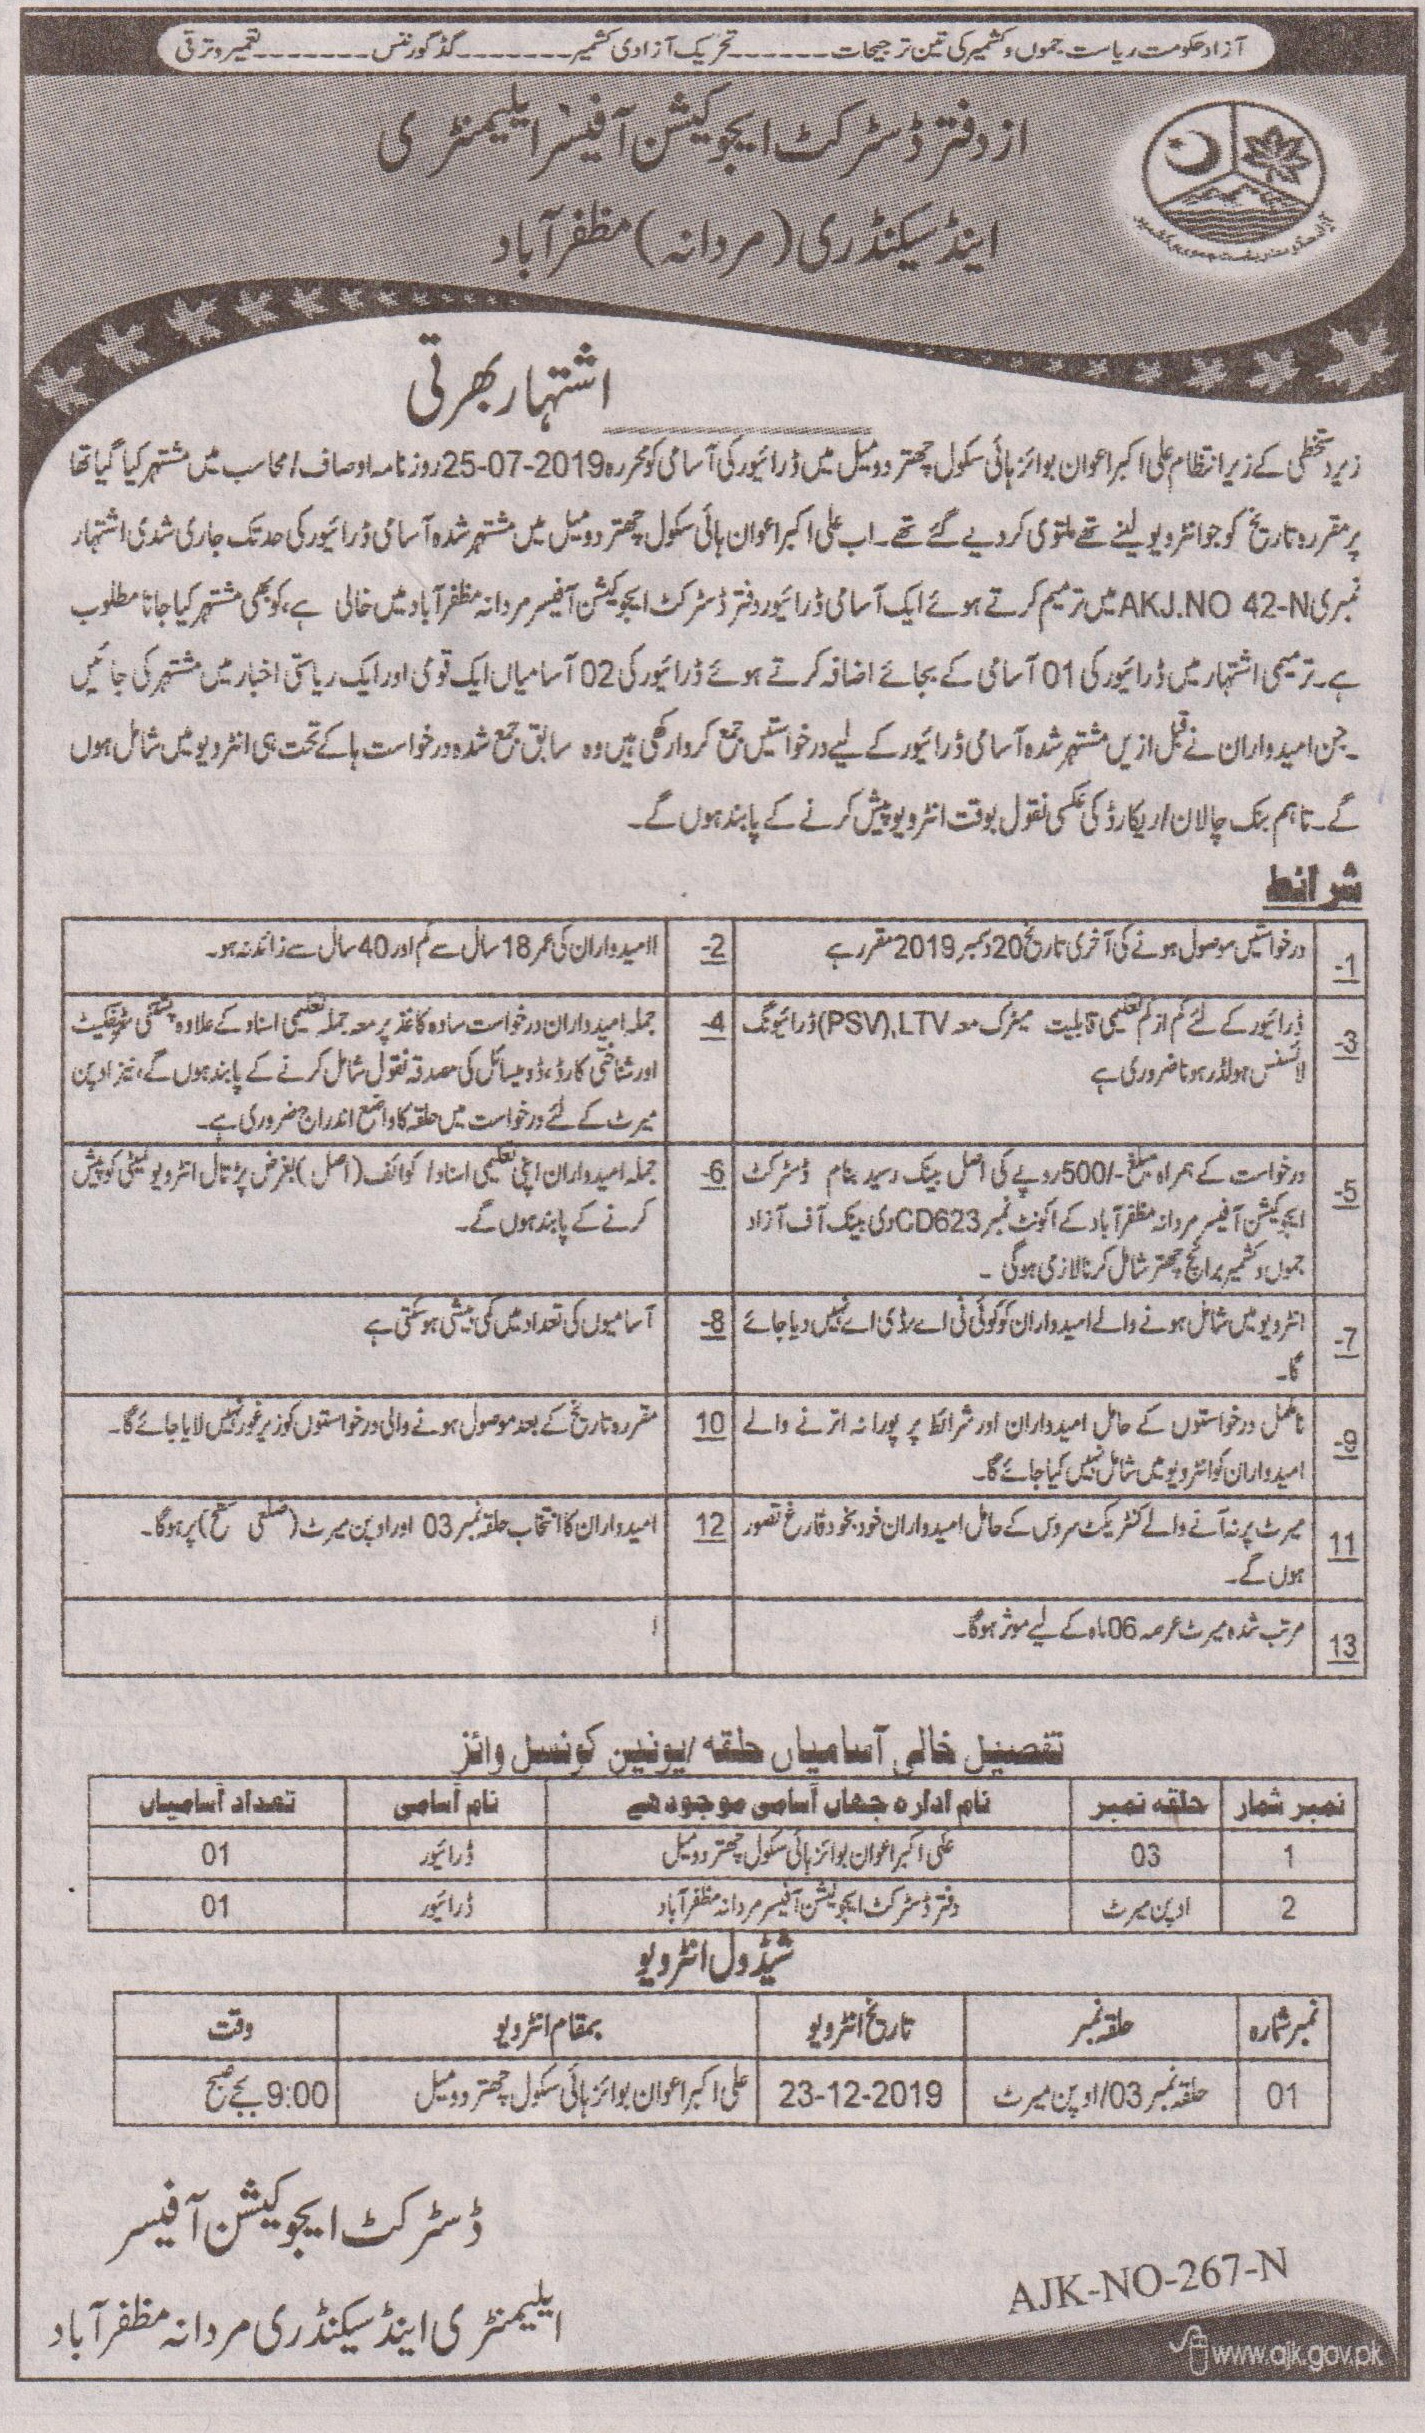 آزاد حکومت ریاست جموں و کشمیر کی تین ترجیحات ------ تحریک آزادی کشمیر ------- گڈ گورننس ------- تعمیر و ترقی
از دفتر ڈسٹرکٹ ایجوکیشن آفیسر ایلیمنٹری
اینڈ سیکنڈری (مردانہ) مظفرآباد
اشتہار بھرتی
زیر دستخطی کے زیر انتظام علی اکبر اعوان بوائز ہائی سکول چھتر دومیل میں ڈرائیور کی آسامی کو محررہ 25-07-2019 روزنامہ اوصاف/محاسب میں مشتہر کیا گیا تھا
پر مقررہ تاریخ کو جو انٹرویو لینے تھے ملتوی کر دیے گئے تھے۔ اب علی اکبر اعوان ہائی سکول چھتر دومیل میں مشتہر شدہ آسامی ڈرائیور کی حد تک جاری شدی اشتہار
نمبری AKJ.NO 42-N میں ترمیم کرتے ہوئے ایک آسامی ڈرائیور دفتر ڈسٹرکٹ ایجوکیشن آفیسر مردانہ مظفرآباد میں خالی ہے، کو بھی مشتہر کیا جانا مطلوب
ہے۔ ترمیمی اشتہار میں ڈرائیور کی 01 آسامی کے بجائے اضافہ کرتے ہوئے ڈرائیور کی 02 آسامیاں ایک قومی اور ایک ریاستی اخبار میں مشتہر کی جائیں
۔ جن امیدواران نے قبل ازیں مشتہر شدہ آسامی ڈرائیور کے لیے درخواستیں جمع کروا رکھی ہیں وہ سابق جمع شدہ درخواست ہا کے تحت ہی انٹرویو میں شامل ہوں
گے۔ تاہم بنک چالان/ریکارڈ کی عکسی نقول بوقت انٹرویو پیش کرنے کے پابند ہوں گے۔
شرائط
1- درخواستیں موصول ہونے کی آخری تاریخ 20 دسمبر 2019 مقرر ہے
2- امیدواران کی عمر 18 سال سے کم اور 40 سال سے زائد نہ ہو۔
3- ڈرائیور کے لئے کم از کم تعلیمی قابلیت میٹرک معہ LTV،(PSV) ڈرائیونگ
لائسنس ہولڈر ہونا ضروری ہے
4- جملہ امیدواران درخواست سادہ کاغذ پر معہ جملہ تعلیمی اسناد کے علاوہ پشتنی سرٹیفکیٹ
اور شناختی کارڈ، ڈومیسائل کی مصدقہ نقول شامل کرنے کے پابند ہوں گے، نیز اوپن
میرٹ کے لئے درخواست میں حلقہ کا واضع اندراج ضروری ہے۔
5- درخواست کے ہمراہ مبلغ -/500 روپے کی اصل بینک رسید بنام ڈسٹرکٹ
ایجوکیشن آفیسر مردانہ مظفرآباد کے اکونٹ نمبر CD623 دی بینک آف آزاد
جموں و کشمیر برانچ چھتر شامل کرنا لازمی ہوگی ۔
6- جملہ امیدواران اپنی تعلیمی اسناد/کوائف (اصل) بغرض پڑتال انٹرویو کمیٹی کو پیش
کرنے کے پابند ہوں گے۔
7- انٹرویو میں شامل ہونے والے امیدواران کو کوئی ٹی اے/ڈی اے نہیں دیا جائے
گا۔
8- آسامیوں کی تعداد میں کمی بیشی ہو سکتی ہے
9- نامکمل درخواستوں کے حامل امیدواران اور شرائط پر پورا نہ اترنے والے
امیدواران کو انٹرویو میں شامل نہیں کیا جائے گا۔
10 مقررہ تاریخ کے بعد موصول ہونے والی درخواستوں کو زیر غور نہیں لایا جائے گا۔
11 میرٹ پر نہ آنے والے کنٹریکٹ سروس کے حامل امیدواران خود بخود فارغ تصور
ہوں گے۔
12 امیدواران کا انتخاب حلقہ نمبر 03 اور اوپن میرٹ (ضلعی سطح) پر ہوگا۔
13 مرتب شدہ میرٹ عرصہ 06 ماہ کے لیے موثر ہوگا۔
تفصیل خالی آسامیاں حلقہ/یونین کونسل وائز
نمبر شمار حلقہ نمبر نام ادارہ جہاں آسامی موجود ہے نام آسامی تعداد آسامیاں
1 03 علی اکبر اعوان بوائز ہائی سکول چھتر دومیل ڈرائیور 01
2 اوپن میرٹ دفتر ڈسٹرکٹ ایجوکیشن آفیسر مردانہ مظفرآباد ڈرائیور 01
شیڈول انٹرویو
نمبر شمارہ حلقہ نمبر تاریخ انٹرویو بمقام انٹرویو وقت
01 حلقہ نمبر 03/اوپن میرٹ 23-12-2019 علی اکبر اعوان بوائز ہائی سکول چھتر دومیل 9:00 بجے صبح
ڈسٹرکٹ ایجوکیشن آفیسر
ایلیمنٹری اینڈ سیکنڈری مردانہ مظفرآباد
AJK-NO-267-N
www.ajk.gov.pk